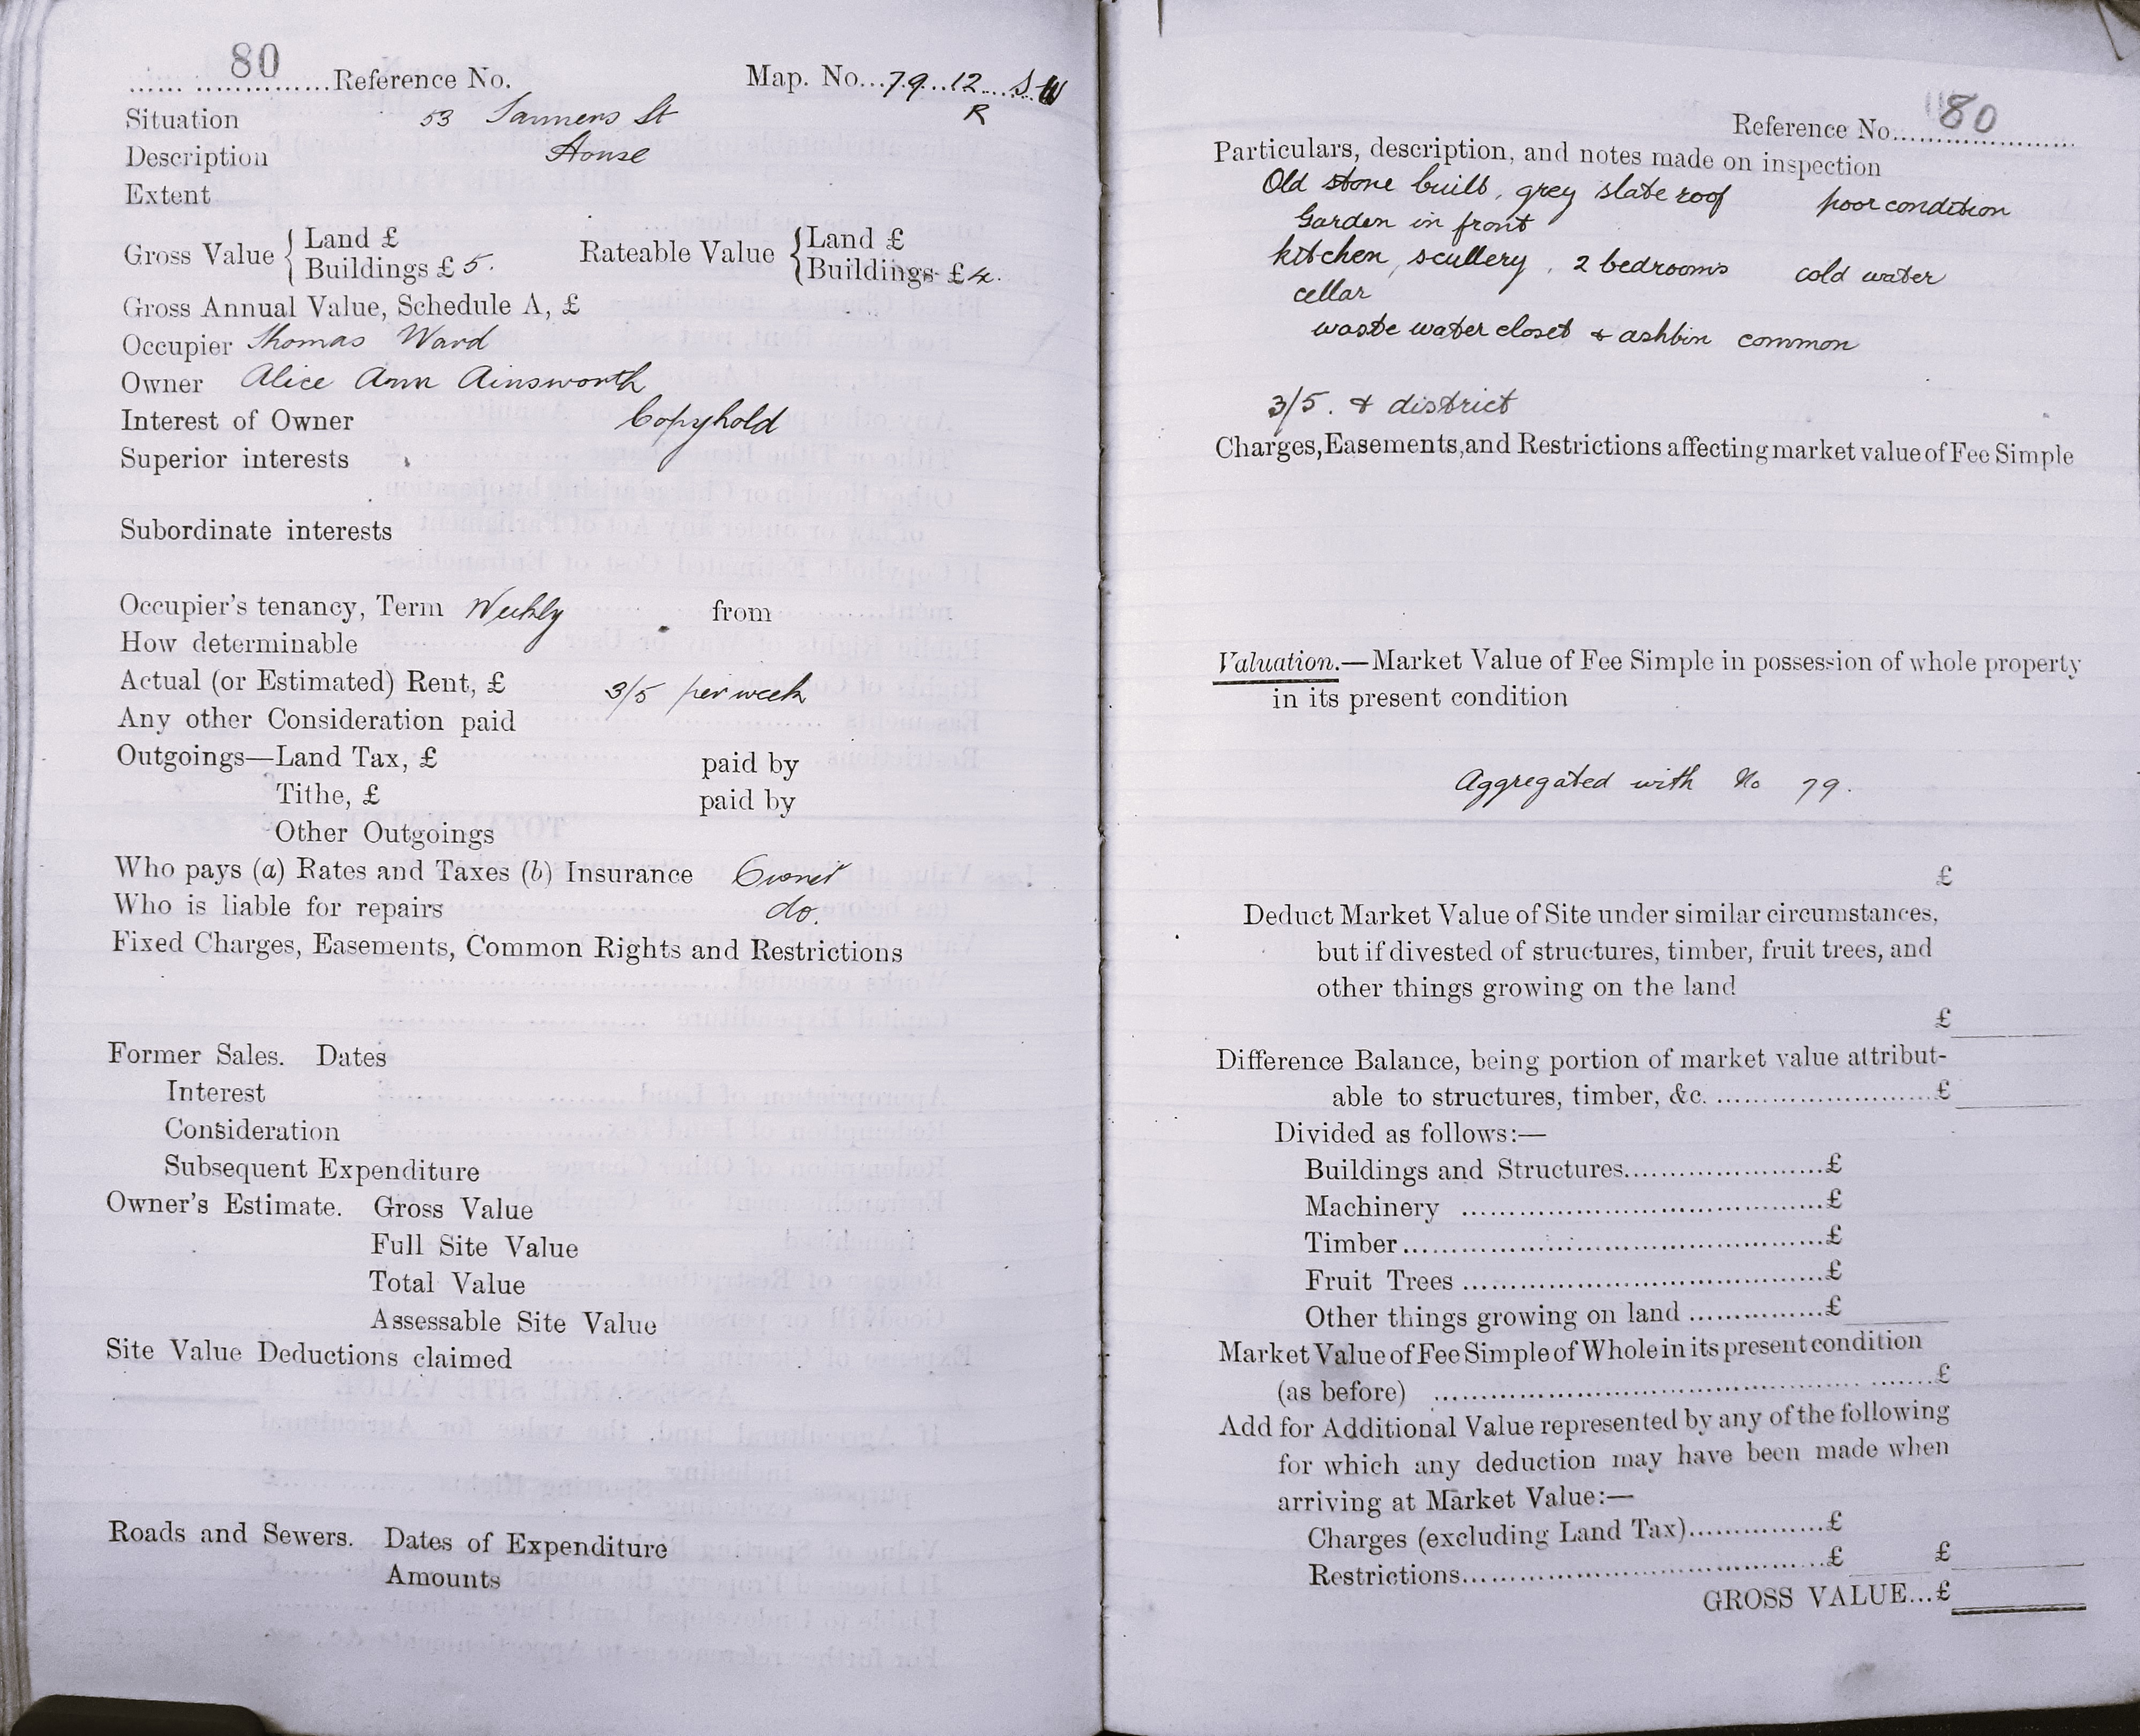 80
...... ..............Reference No. Map. No...79...12....S.W
R
Situation 53 Tanners St
Description House
Extent
Gross Value { Land £ Rateable Value { Land £
Buildings £ 5. Buildings £ 4.
Gross Annual Value, Schedule A, £
Occupier Thomas Ward
Owner Alice Ann Ainsworth
Interest of Owner Copyhold
Superior interests
Subordinate interests
Occupier's tenancy, Term Weekly from
How determinable
Actual (or Estimated) Rent, £ 3/5 per week
Any other Consideration paid
Outgoings—Land Tax, £ paid by
Tithe, £ paid by
Other Outgoings
Who pays (a) Rates and Taxes (b) Insurance Owner
Who is liable for repairs do.
Fixed Charges, Easements, Common Rights and Restrictions
Former Sales. Dates
Interest
Consideration
Subsequent Expenditure
Owner's Estimate. Gross Value
Full Site Value
Total Value
Assessable Site Value
Site Value Deductions claimed
Roads and Sewers. Dates of Expenditure
Amounts
Reference No......80............
Particulars, description, and notes made on inspection
Old stone built, grey slate roof poor condition
Garden in front
kitchen, scullery, 2 bedrooms cold water
cellar
waste water closet & ashbin common
3/5. & district
Charges, Easements, and Restrictions affecting market value of Fee Simple
Valuation.—Market Value of Fee Simple in possession of whole property
in its present condition
Aggregated with No 79.
£
Deduct Market Value of Site under similar circumstances,
but if divested of structures, timber, fruit trees, and
other things growing on the land
£
Difference Balance, being portion of market value attribut-
able to structures, timber, &c. ............................£
Divided as follows:—
Buildings and Structures.........................£
Machinery .............................................£
Timber....................................................£
Fruit Trees .............................................£
Other things growing on land .................£
Market Value of Fee Simple of Whole in its present condition
(as before) ........................................................£
Add for Additional Value represented by any of the following
for which any deduction may have been made when
arriving at Market Value:—
Charges (excluding Land Tax).................£
Restrictions.............................................£ £
GROSS VALUE...£